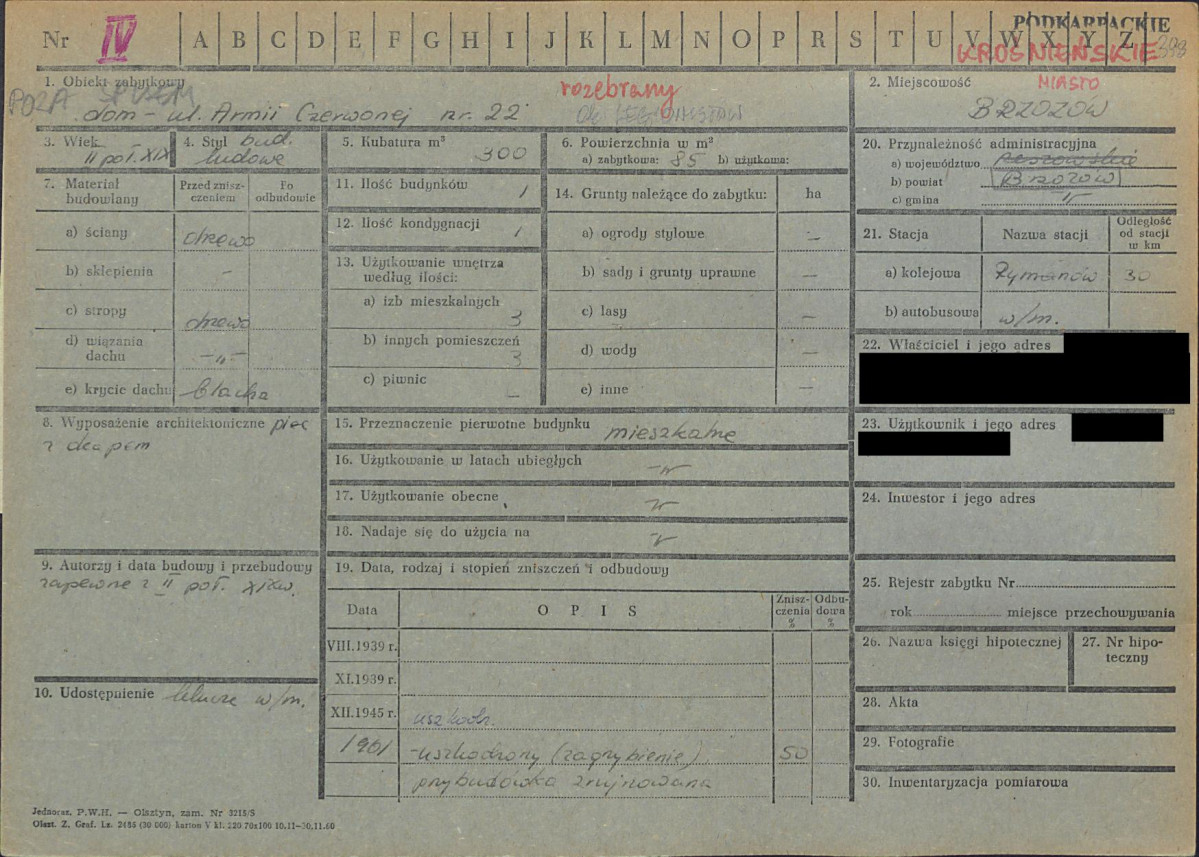 PODKARPACKIE
Nr IV A B C D E F G H I J K L M N O P R S T U V W X Y Z
KROŚNIEŃSKIE
1. Obiekt zabytkowy
rozebrany
POZA
dom - ul. Armii Czerwonej nr. 22
2. Miejscowość
MIASTO
BRZOZÓW
3. Wiek
II poł. XIX
4. Styl bud.
ludowe
5. Kubatura m³
300
6. Powierzchnia w m²
a) zabytkowa: 85 b) użytkowa:
20. Przynależność administracyjna
a) województwo rzeszowskie
b) powiat Brzozów
c) gmina -"-
7. Materiał budowlany
Przed zniszczeniem
Po odbudowie
a) ściany drzewo
b) sklepienia -
c) stropy drzewo
d) wiązania dachu -"-
e) krycie dachu blacha
11. Ilość budynków 1
12. Ilość kondygnacji 1
13. Użytkowanie wnętrza według ilości:
a) izb mieszkalnych 3
b) innych pomieszczeń 3
c) piwnic -
14. Grunty należące do zabytku: ha
a) ogrody stylowe -
b) sady i grunty uprawne -
c) lasy -
d) wody -
e) inne -
21. Stacja
Nazwa stacji
Odległość od stacji w km
a) kolejowa Rymanów 30
b) autobusowa w/m.
22. Właściciel i jego adres
23. Użytkownik i jego adres
8. Wyposażenie architektoniczne piec
z okapem
15. Przeznaczenie pierwotne budynku mieszkalne
16. Użytkowanie w latach ubiegłych -"-
17. Użytkowanie obecne -"-
18. Nadaje się do użycia na -"-
24. Inwestor i jego adres
9. Autorzy i data budowy i przebudowy
zapewne z II poł. XIXw.
19. Data, rodzaj i stopień zniszczeń i odbudowy
Data
OPIS
Zniszczenia %
Odbudowa %
VIII.1939 r.
XI.1939 r.
XII.1945 r. uszkodz.
1961 - uszkodzony (zagrzybienie) 50
przybudówka zrujnowana
25. Rejestr zabytku Nr
rok miejsce przechowywania
26. Nazwa księgi hipotecznej
27. Nr hipoteczny
10. Udostępnienie w/m.
28. Akta
29. Fotografie
30. Inwentaryzacja pomiarowa
Jednocz. P.W.H. — Olsztyn, zam. Nr 3215/S
Olszt. Z. Graf. Lz. 2485 (30 000) karton V kl. 220 70x100 10.11-30.11.60